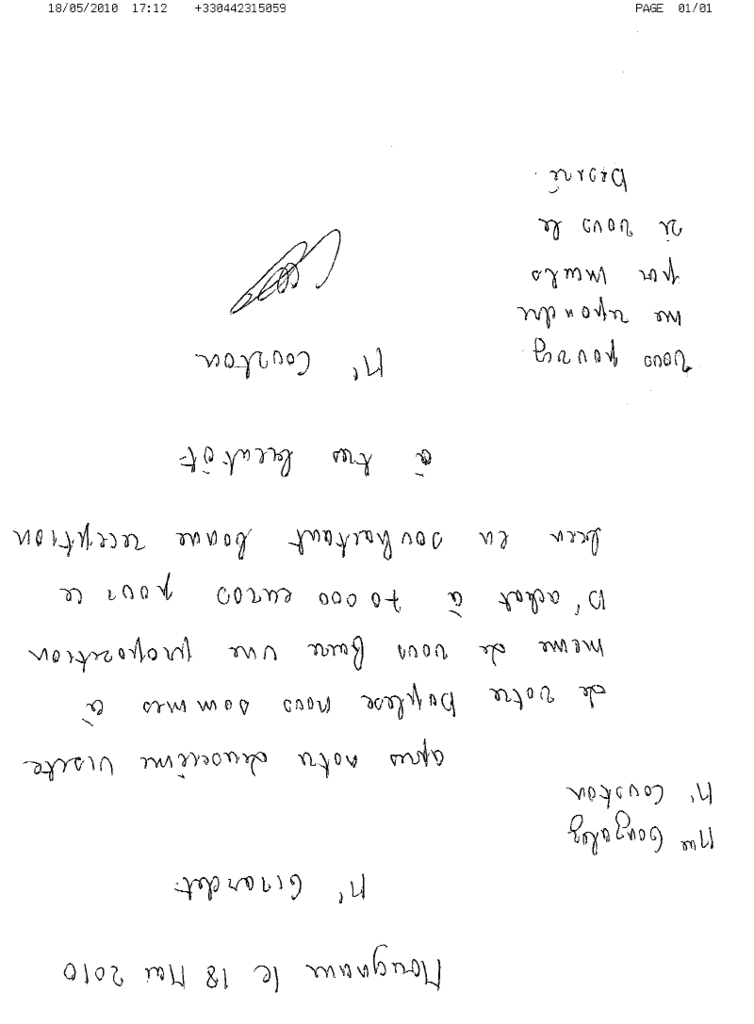 18/05/2010 17:12 +330442315059 PAGE 01/01
le 18 Mai 2010
Mr Girardet
Mme Gonzalez
Mr Couston
apres notre deuxième visite
de votre Duplexe nous sommes à
meme de vous faire une proposition
D'achat à 70 000 euros pour ce
bien en souhaitant bonne reception
à tres bientôt
Mr Couston
vous pouvez
me repondre
par mails
si vous le
Désiré.